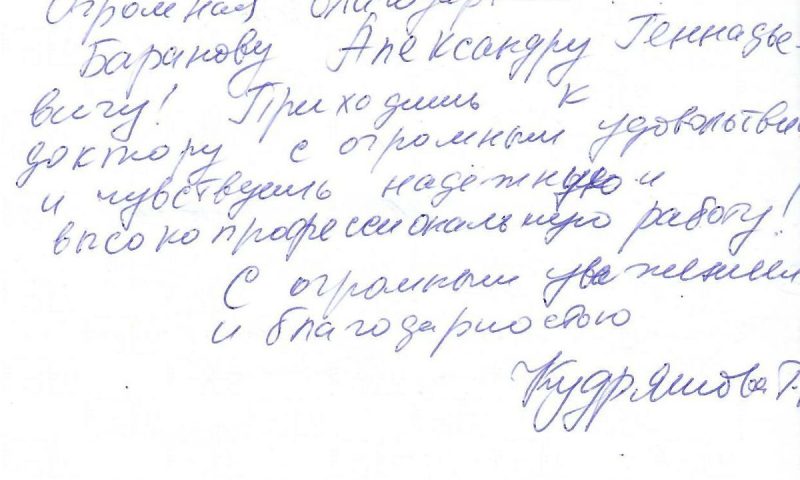 Огромная благодар
Баранову Александру Геннадье-
вичу! Приходишь к
доктору с огромным удовольстви
и чувствуешь надежную и
высокопрофессиональную работу!
С огромным уважением
и благодарностью
Кудряшова Т.